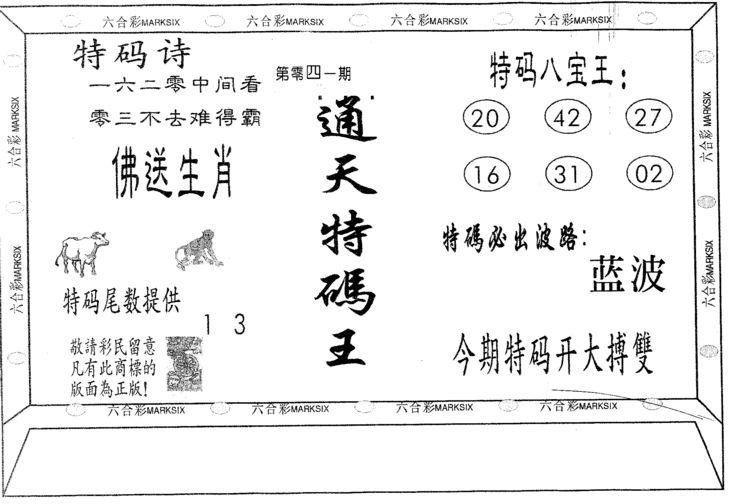 六合彩MARKSIX 六合彩MARKSIX 六合彩MARKSIX 六合彩MARKSIX
六合彩MARKSIX
六合彩MARKSIX
特码诗
一六二零中间看
零三不去难得霸
佛送生肖
特码尾数提供
1 3
敬請彩民留意
凡有此商標的
版面為正版!
第零四一期
通天特碼王
特码八宝王:
20 42 27
16 31 02
特碼必出波路:
蓝波
今期特码开大搏雙
六合彩MARKSIX
六合彩MARKSIX
六合彩MARKSIX 六合彩MARKSIX 六合彩MARKSIX 六合彩MARKSIX